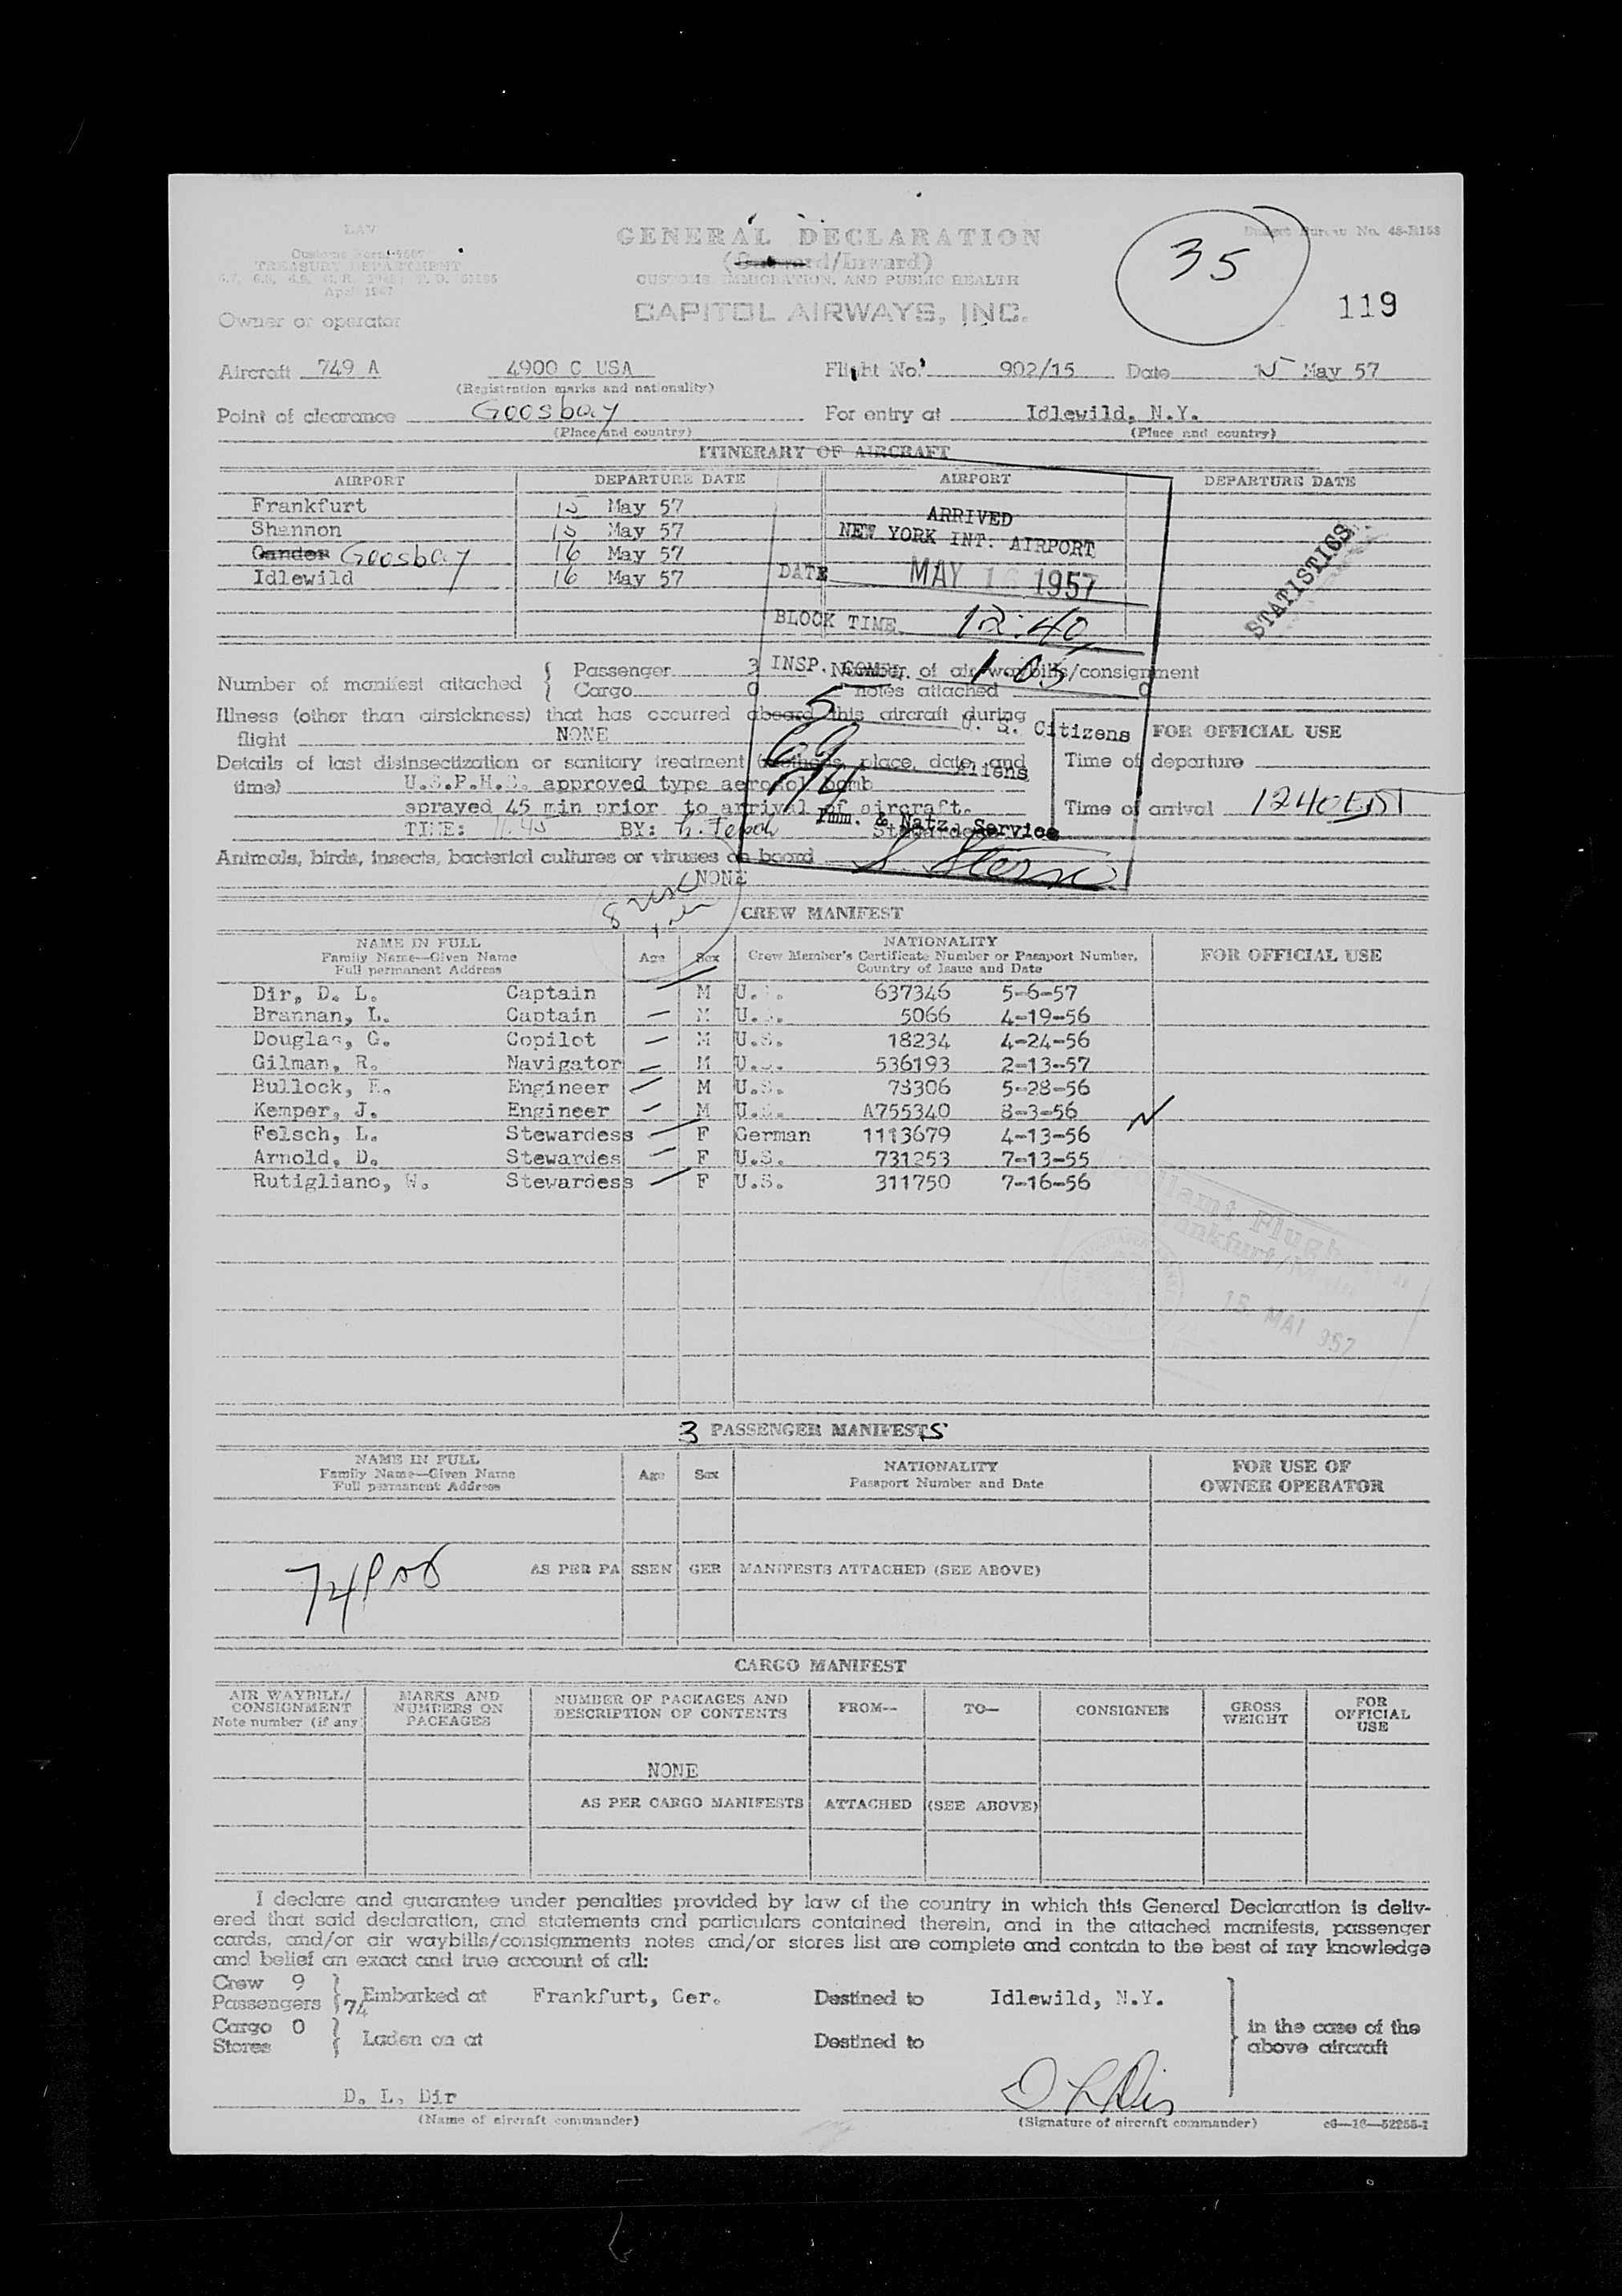 GENERAL DECLARATION
35
Budget Bureau No. 48-R153
(Outward/Inward)
TREASURY DEPARTMENT
CUSTOMS, IMMIGRATION, AND PUBLIC HEALTH
April 1947
119
CAPITOL AIRWAYS, INC.
Owner or operator
Aircraft 749 A 4900 C USA Flight No. 902/15 Date 15 May 57
(Registration marks and nationality)
Point of clearance Goosbay For entry at Idlewild, N.Y.
(Place and country) (Place and country)
ITINERARY OF AIRCRAFT
AIRPORT DEPARTURE DATE AIRPORT DEPARTURE DATE
Frankfurt 15 May 57
Shannon 15 May 57
Gander Goosbay 16 May 57
Idlewild 16 May 57
ARRIVED
NEW YORK INT. AIRPORT
DATE MAY 16 1957
BLOCK TIME 12:40
INSP. COMPL. 1:05
5 U. S. Citizens
69 Aliens
74
Imm. & Natz. Service
STATISTICS
Number of manifest attached { Passenger 3 Number of air waybills/consignment
Cargo 0 notes attached 0
Illness (other than airsickness) that has occurred aboard this aircraft during
flight NONE
FOR OFFICIAL USE
Details of last disinsectization or sanitary treatment (methods, place, date, and
time) U.S.P.H.S. approved type aerosol bomb
Time of departure
sprayed 45 min prior to arrival of aircraft.
Time of arrival 1240 EDT
TIME: 11.45 BY: Stewardess
Animals, birds, insects, bacterial cultures or viruses on board
NONE
CREW MANIFEST
NAME IN FULL
Family Name—Given Name
Full permanent Address
Age Sex
NATIONALITY
Crew Member's Certificate Number or Passport Number,
Country of Issue and Date
FOR OFFICIAL USE
Dir, D. L. Captain M U.S. 637346 5-6-57
Brannan, L. Captain M U.S. 5066 4-19-56
Douglas, G. Copilot M U.S. 18234 4-24-56
Gilman, R. Navigator M U.S. 536193 2-13-57
Bullock, E. Engineer M U.S. 78306 5-28-56
Kemper, J. Engineer M U.S. A755340 8-3-56
Felsch, L. Stewardess F German 1113679 4-13-56
Arnold, D. Stewardes F U.S. 731253 7-13-55
Rutigliano, W. Stewardess F U.S. 311750 7-16-56
Zollamt Flugh
Frankfurt/Main
15. MAI 957
3 PASSENGER MANIFESTS
NAME IN FULL
Family Name—Given Name
Full permanent Address
Age Sex
NATIONALITY
Passport Number and Date
FOR USE OF
OWNER OPERATOR
74
AS PER PASSENGER MANIFESTS ATTACHED (SEE ABOVE)
CARGO MANIFEST
AIR WAYBILL/
CONSIGNMENT
Note number (if any)
MARKS AND
NUMBERS ON
PACKAGES
NUMBER OF PACKAGES AND
DESCRIPTION OF CONTENTS
FROM— TO— CONSIGNEE
GROSS
WEIGHT
FOR
OFFICIAL
USE
NONE
AS PER CARGO MANIFESTS ATTACHED (SEE ABOVE)
I declare and guarantee under penalties provided by law of the country in which this General Declaration is deliv-
ered that said declaration, and statements and particulars contained therein, and in the attached manifests, passenger
cards, and/or air waybills/consignments notes and/or stores list are complete and contain to the best of my knowledge
and belief an exact and true account of all:
Crew 9
Passengers 74 } Embarked at Frankfurt, Ger. Destined to Idlewild, N.Y.
Cargo 0
Stores } Laden on at Destined to
in the case of the
above aircraft
D. L. Dir D L Dir
(Name of aircraft commander) (Signature of aircraft commander) c6—16—52255-1